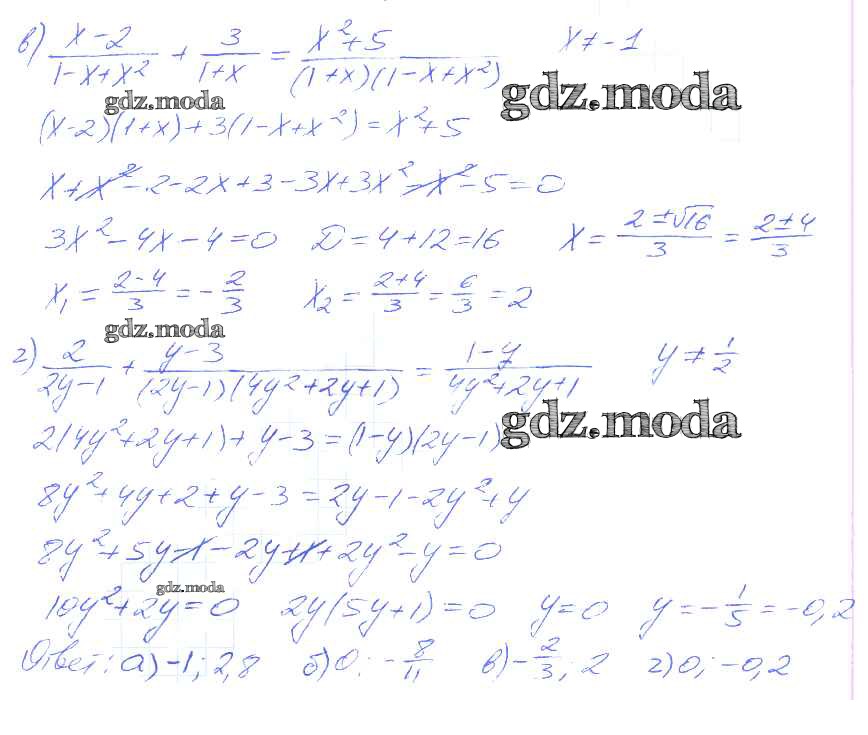 в) (x-2)/(1-x+x²) + 3/(1+x) = (x²+5)/((1+x)(1-x+x²)) x≠-1
gdz.moda gdz.moda
(x-2)(1+x)+3(1-x+x²)=x²+5
x+x²-2-2x+3-3x+3x²-x²-5=0
3x²-4x-4=0 D=4+12=16 x=(2±√16)/3=(2±4)/3
x₁=(2-4)/3=-2/3 x₂=(2+4)/3=6/3=2
gdz.moda
г) 2/(2y-1) + (y-3)/((2y-1)(4y²+2y+1)) = (1-y)/(4y²+2y+1) y≠1/2
2(4y²+2y+1)+y-3=(1-y)(2y-1) gdz.moda
8y²+4y+2+y-3=2y-1-2y²+y
8y²+5y-1-2y+1+2y²-y=0
gdz.moda
10y²+2y=0 2y(5y+1)=0 y=0 y=-1/5=-0,2
Ответ: а)-1; 2,8 б)0; -8/11 в)-2/3; 2 г)0; -0,2